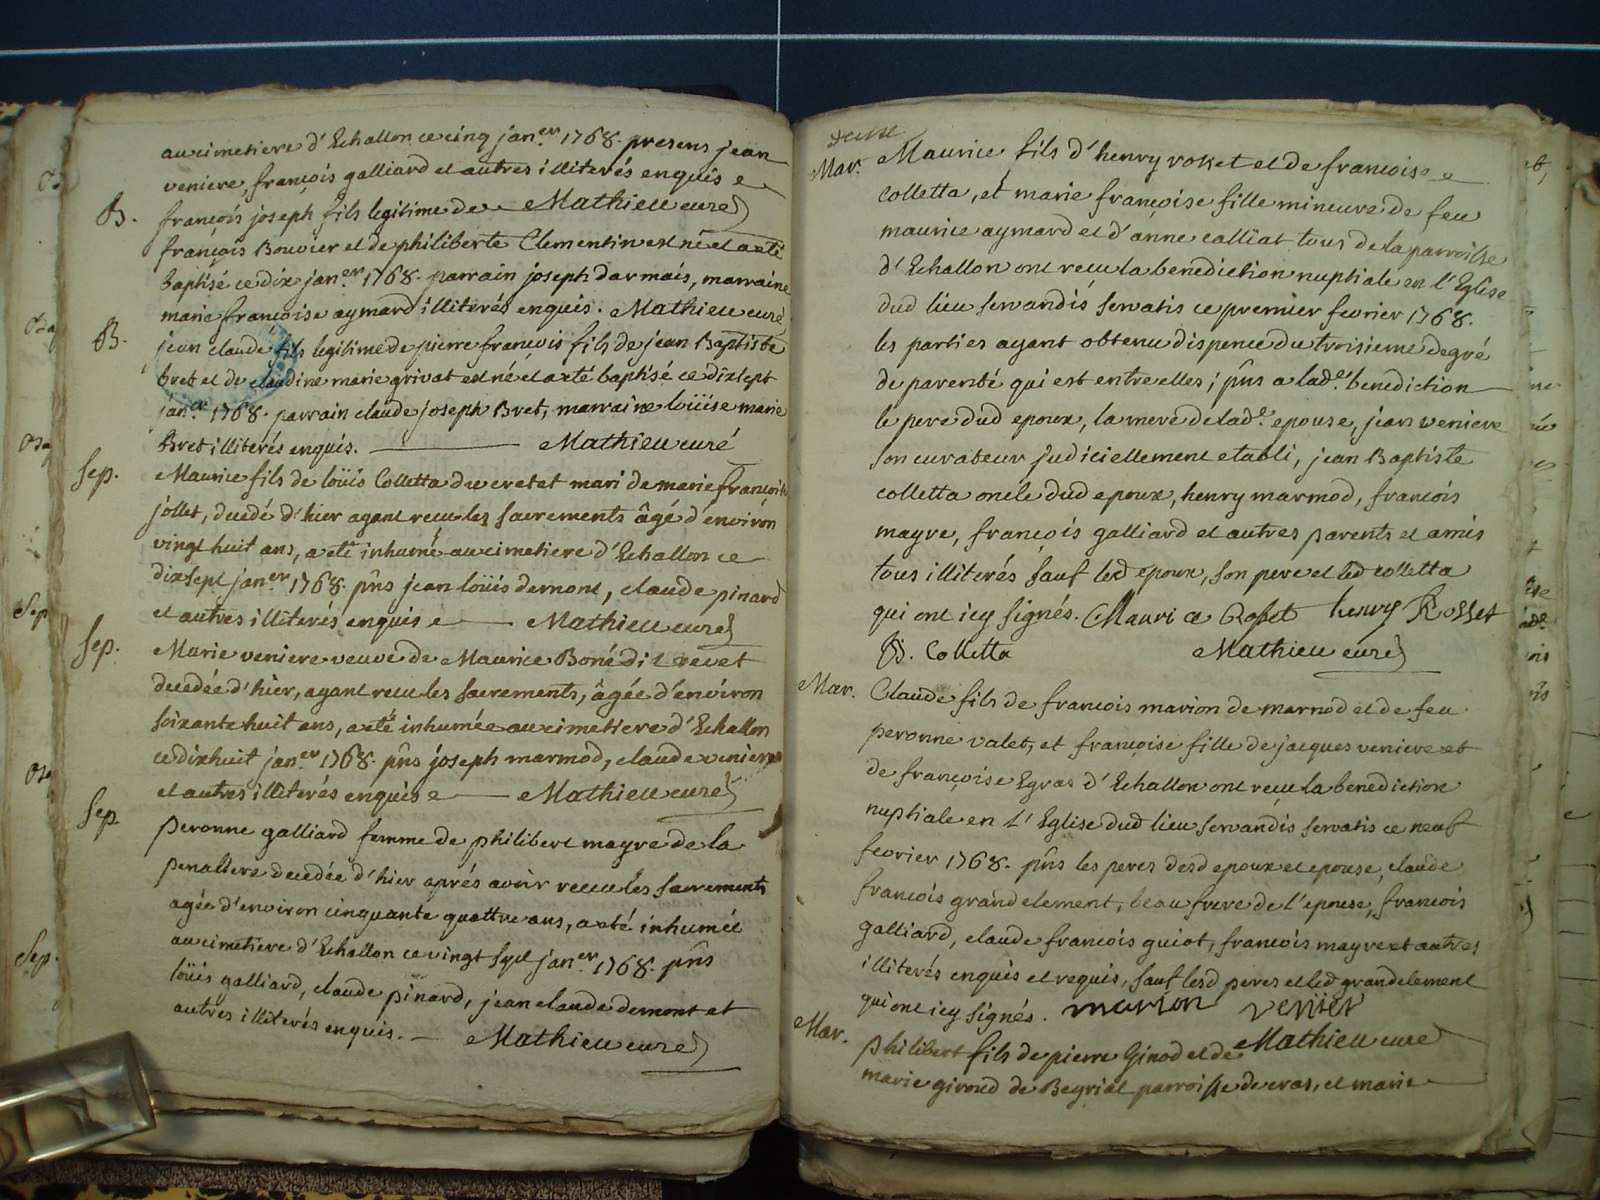 au cimetiere d'Echallon ce cinq jan.er 1768. presens jean
veniere, françois galliard et autres illiterés enquis e
B. françois joseph fils legitime de Mathieu curé
françois Bouvier et de philiberte Clementin est né et a eté
baptisé ce dix jan.er 1768. parrain joseph darmais, marraine
marie françoise aymard illiterés enquis. Mathieu curé
B. jean claude fils legitime de pierre françois fils de jean Baptiste
bret et de claudine marie grivat est né et a eté baptisé ce dixsept
jan.er 1768. parrain claude joseph Bret, marraine loüise marie
Bret illiterés enquis. Mathieu curé
Sep. Maurice fils de loüis Colletta du cretet mari de marie françoise
jollet, decedé d'hier ayant recu les sacrements âgé d'environ
vingt huit ans, a eté inhumé au cimetiere d'Echallon ce
dixsept jan.er 1768. pñs jean loüis demont, claude pinard
et autres illiterés enquis e Mathieu curé
Sep. Marie veniere veuve de Maurice Boné di revet
decedée d'hier, ayant recu les sacrements, âgée d'environ
soixante huit ans, a eté inhumée au cimetiere d'Echallon
ce dixhuit jan.er 1768. pñs joseph marmod, claude veniere
et autres illiterés enquis e Mathieu curé
Sep. peronne galliard femme de philibert mayre de la
penaltere decedée d'hier aprés avoir recu les sacrements
agée d'environ cinquante quattre ans, a eté inhumée
au cimetiere d'Echallon ce vingt sept jan.er 1768. pñs
loüis galliard, claude pinard, jean claude demont et
autres illiterés enquis. Mathieu curé
Mar. Maurice fils d'henry roket et de francoise
colletta, et marie françoise fille mineure de feu
maurice aymard et d'anne calliat tous de la parroisse
d'Echallon ont recu la benediction nuptiale en l'Eglise
dud lieu servandis servatis ce premier fevrier 1768.
les parties ayant obtenu dispence du troisieme degré
de parenté qui est entre elles; pñs a lad.e benediction
le pere dud epoux, la mere de lad.e epouse, jean veniere
son curateur judiciellement etabli, jean Baptiste
colletta oncle dud epoux, henry marmod, françois
mayre, françois galliard et autres parents et amis
tous illiterés sauf led epoux, son pere et led colletta
qui ont icy signés. Mauri ce Rosset henry Rosset
JB. Colletta Mathieu curé
Mar. Claude fils de francois marion de marnod et de feu
peronne valet, et françoise fille de jacques veniere et
de françoise Egras d'Echallon ont recu la benediction
nuptiale en L'Eglise dud lieu servandis servatis ce neuf
fevrier 1768. pñs les peres desd epoux et epouse, claude
francois grandclement, beau frere de l'epouse, francois
galliard, claude francois guiot, francois mayre et autres
illiterés enquis et requis, sauf lesd peres et led grandclement
qui ont icy signés. marion venier
Mar. philibert fils de pierre Ginod et de Mathieu curé
marie giroud de Beyriat parroisse de cras, et marie